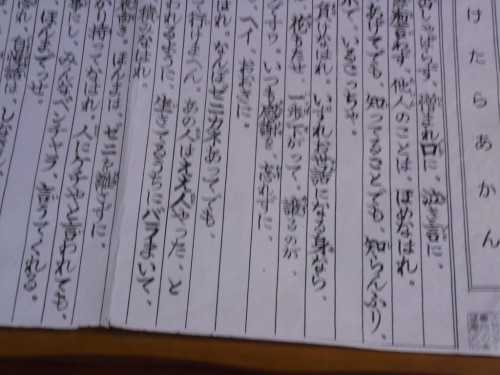 けたらあかん
しゃばらず、憎まれ口に、泣き言に、
言わず、他人のことは、ほめなはれ。
あげてでも、知ってることでも、知らんふり、
いるこっちゃ。
負けなはれ。いずれお世話になる身なら、
花持たせ、一歩下がって、譲るのが
いつも感謝を、忘れずに、
ヘイ おおきに。
なはれ。なんぼゼニカネあってでも、
て行けまへん。あの人はええ人やった、と
われるように、生きてるうちにバラまいて、
積みなはれ。
ほんまは、ゼニを離さずに、
かり持ってなはれ。人にケチやと言われても、
事にし、みんなベンチャラ言うてくれる。
ほんまでっせ。
自慢話は、